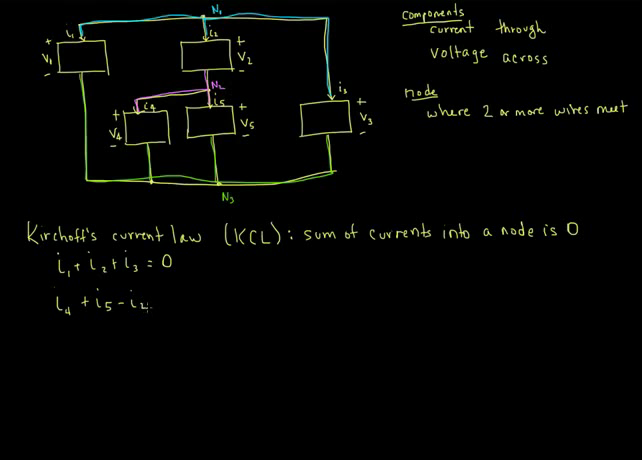 N1
i1
i2
+
V1
-
+
V2
-
N2
i4
i5
i3
+
V4
-
+
V5
-
+
V3
-
N3
Components
current through
voltage across
node
where 2 or more wires meet
Kirchoff's current law (KCL): sum of currents into a node is 0
i1 + i2 + i3 = 0
i4 + i5 - i2